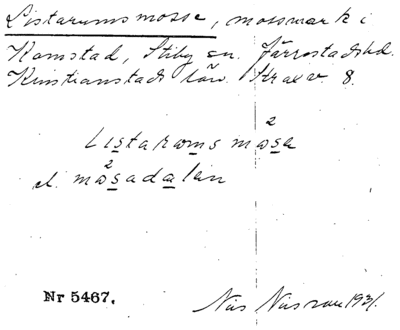 Listarumsmosse, mossmark i
Komstad, Stiby sn. Järrestads hd.
Kristianstads län. Kraxv. 8.
2
Listaroms mosa
2
el. mosadalen
Nr 5467.
Nils 1931.